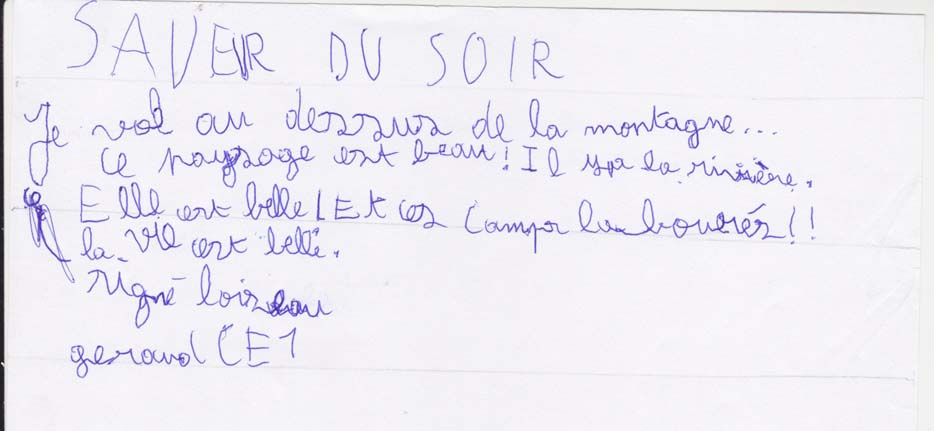 SAVEUR DU SOIR
Je vol au dessus de la montagne...
Ce paysage est beau! Il ya la rivière.
Elle est belle! Et ces camps labourés!!
la vie est belle.
signé loiseau
geraud CE1